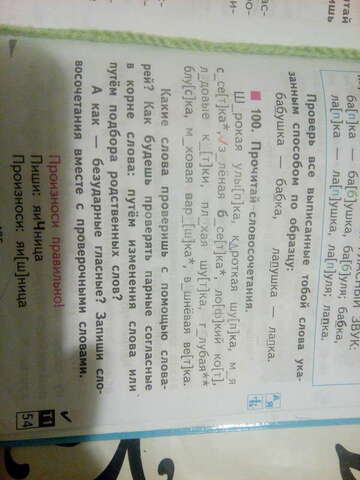 ЗВУК:
ба[п]ка — ба[б]ушка, ба[б]уля; бабка,
ла[п]ка — ла[п]ушка, ла[п]уля; лапка.
Проверь все выписанные тобой слова ука-
занным способом по образцу:
бабушка — бабка, лапушка — лапка.
100. Прочитай словосочетания.
Ш_рокая улы[п]ка, к_роткая шу[п]ка, м_я
с_се[т]ка*, з_лёная б_се[т]ка*, ло[ф]кий ко[т],
л_довые к_[т]ки, пл_хая шу[т]ка, г_лубая**
блу[с]ка, м_ховая вар_[ш]ка*, в_шнёвая ве[т]ка.
Какие слова проверишь с помощью слова-
рей? Как будешь проверять парные согласные
в корне слова: путём изменения слова или
путём подбора родственных слов?
А как — безударные гласные? Запиши сло-
восочетания вместе с проверочными словами.
Произноси правильно!
Пиши: яиЧница
Произноси: яи[ш]ница
54